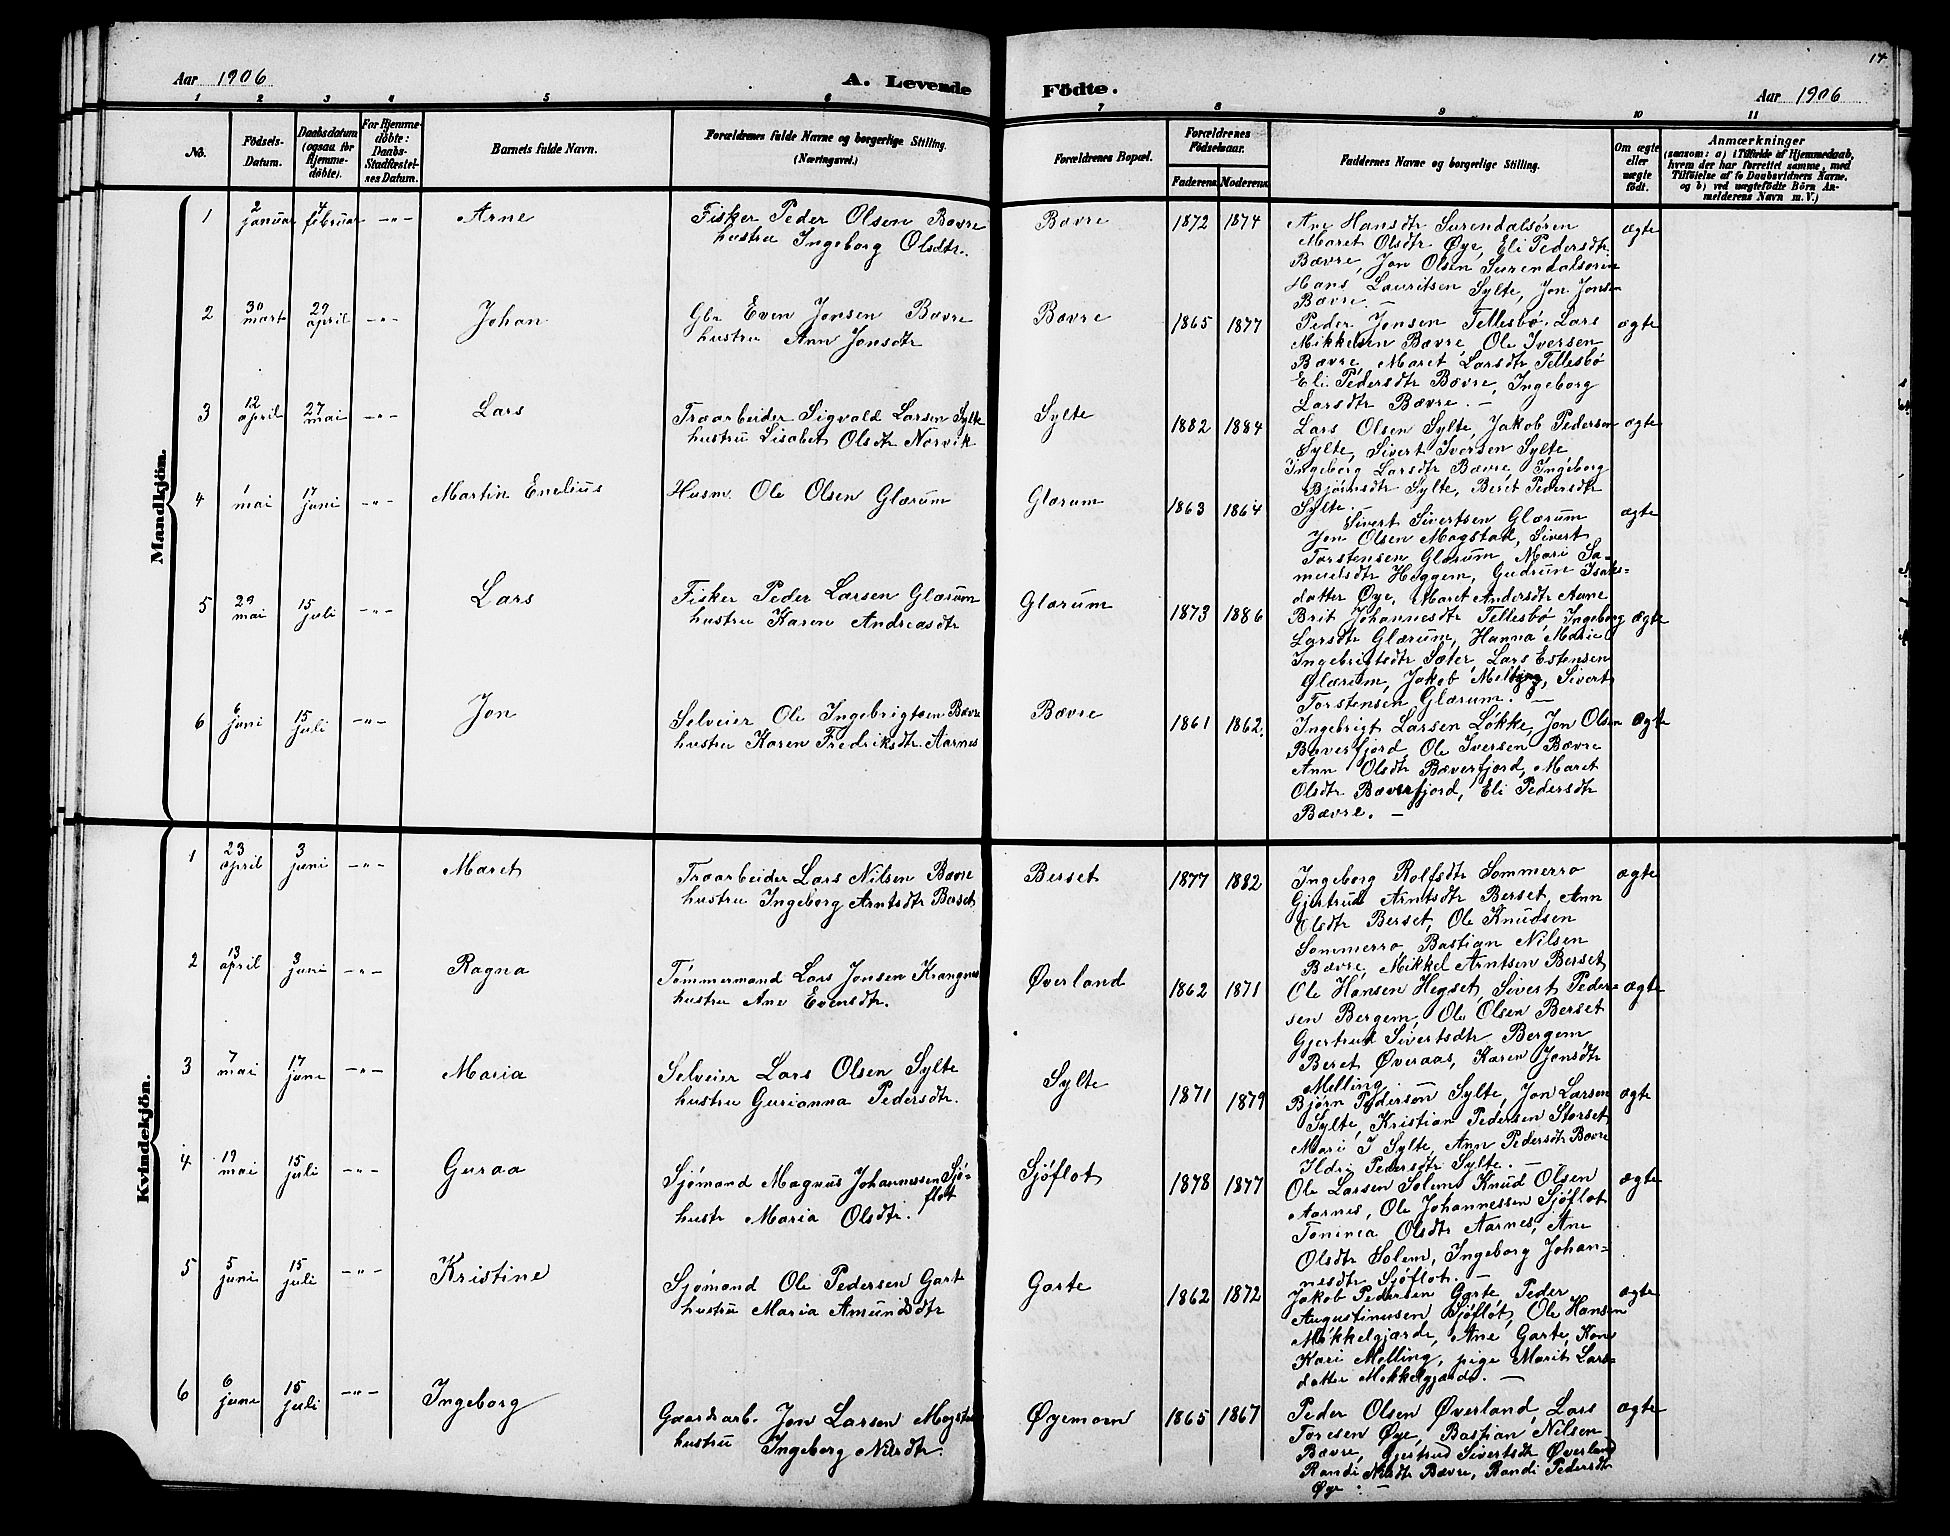 14
Aar 1906
A. Levende Födte.
Aar 1906
1 2 3 4 5 6 7 8 9 10 11
No.
Födsels-
Datum.
Daabsdatum
(ogsaa for
Hjemme-
döbte).
For Hjemme-
döbte:
Daabs-
Stadfæstel-
ses Datum.
Barnets fulde Navn.
Forældrenes fulde Navne og borgerlige Stilling.
(Næringsvei.)
Forældrenes Bopæl.
Forældrenes
Födselsaar.
Faderens Moderens
Faddernes Navne og borgerlige Stilling.
Om ægte
eller
uægte
født.
Anmærkninger
(saasom: a) i Tilfælde af Hjemmedaab,
hvem der har forrettet samme, med
Tilføielse af to Daabsvidners Navne,
og b) ved uægtefödte Börn An-
melderens Navn m. V.)
Mandkjön.
1 2 januar 4 februar -"- Arne
Fisker Peder Olsen Bævre
hustru Ingeborg Olsdtr.
Bævre 1872 1874
Ane Hansdtr Surendalsören
Maret Olsdtr Øye, Eli Pedersdtr
Bævre, Jon Olsen Surendalsören
Hans Lauritsen Sylte, Jon Jonsen
Bævre. —
ægte
2 30 mart 29 april -"- Johan
Gbr Even Jonsen Bævre
hustru Ann Jonsdtr
Bævre 1865 1877
Peder Jonsen Tellesbö. Lars
Mikkelsen Bævre, Ole Iversen
Bævre, Maret Larsdtr Tellesbö
Eli Pedersdtr Bævre, Ingeborg
Larsdtr Bævre. —
ægte
3 12 april 27 mai -"- Lars
Træarbeider Sigvald Larsen Sylte
hustru Lisabet Olsdtr Norvik
Sylte 1882 1884
Lars Olsen Sylte, Jakob Pedersen
Sylte, Sivert Iversen Sylte
Ingeborg Larsdtr Bævre, Ingeborg
Bjørnsdtr Sylte, Beret Pedersdtr
Sylte. —
ægte
4 1 mai 17 juni -"- Martin Enelius
Husm. Ole Olsen Glærum
Glærum 1863 1864
Sivert Sivertsen Glærum
Jon Olsen Mogstad, Sivert
Torstensen Glærum, Mari Sa-
muelsdtr Heggem, Gudrun Isaks-
datter Øye, Maret Andersdtr Aune
ægte
5 29 mai 15 juli -"- Lars
Fisker Peder Larsen Glærum
hustru Karen Andreasdtr
Glærum 1873 1886
Brit Johannesdtr Tellesbö, Ingeborg
Larsdtr Glærum, Hanna Marie
Ingebrigtsdtr Sæter, Lars Estensen
Glærum, Jakob Melling, Sivert
Torstensen Glærum. —
ægte
6 6 juni 15 juli -"- Jon
Selveier Ole Ingebrigtsen Bævre
hustru Karen Fredriksdtr Aarnes
Bævre 1861 1862.
Ingebrigt Larsen Løkke, Jon Olsen
Bæverfjord, Ole Iversen Bævre
Ann Olsdtr Bæverfjord, Maret
Olsdtr Bæverfjord, Eli Pedersdtr
Bævre. —
ægte
Kvindekjön.
1 23 april 3 juni -"- Maret
Træarbeider Lars Nilsen Bævre
hustru Ingeborg Arntsdtr Berset
Berset 1877 1882
Ingeborg Rolfsdtr Sommerro
Gjertrud Arntsdtr Berset, Ann
Olsdtr Berset, Ole Knudsen
Sommerro, Bastian Nilsen
Bævre, Mikkel Arntsen Berset
ægte
2 13 april 3 juni -"- Ragna
Tømmermand Lars Jonsen Krangnes
hustru Ane Evensdtr.
Øverland 1862 1871
Ole Hansen Hegset, Sivert Peder-
sen Bergem, Ole Olsen Berset
Gjertrud Sivertsdtr Bergem
Beret Øveraas, Karen Jonsdtr
Melling —
ægte
3 7 mai 17 june -"- Maria
Selveier Lars Olsen Sylte
hustru Gurianna Pedersdtr.
Sylte 1871 1879
Bjørn Pedersen Sylte, Jon Larsen
Sylte, Kristian Pedersen Storset
Mari J Sylte, Ann Pedersdtr Bævre
Ildri Pedersdtr Sylte. —
ægte
4 19 mai 15 juli -"- Guraa
Sjømand Magnus Johannessen Sjö-
flot
hustr Maria Olsdtr.
Sjöflot 1878 1877
Ole Larsen Solem, Knud Olsen
Aarnes, Ole Johannessen Sjöflot
Olsdtr Aarnes, Ane
Olsdtr Solem, Ingeborg Johan-
nesdtr Sjöflot. —
ægte
5 5 juni 15 juli -"- Kristine
Sjømand Ole Pedersen Garte
hustru Maria Amundsdtr
Garte 1862 1872
Jakob Pedersen Garte, Peder
Augustinusen Sjöflot, Ole Hansen
Mikkelgjærde, Ane Garte, Kone
Kari Melling, pige Marit Lars-
datter Mikkelgjærde. —
ægte
6 6 june 15 juli -"- Ingeborg
Gaardarb. Jon Larsen Mogstad
hustru Ingeborg Nilsdtr.
Øyemoen 1865 1867
Peder Olsen Øverland, Lars
Toresen Øye, Bastian Nilsen
Bævre, Gjertrud Sivertsdtr Øverland
Randi Nilsdtr Bævre, Randi Pedersdtr
Øye. —
ægte